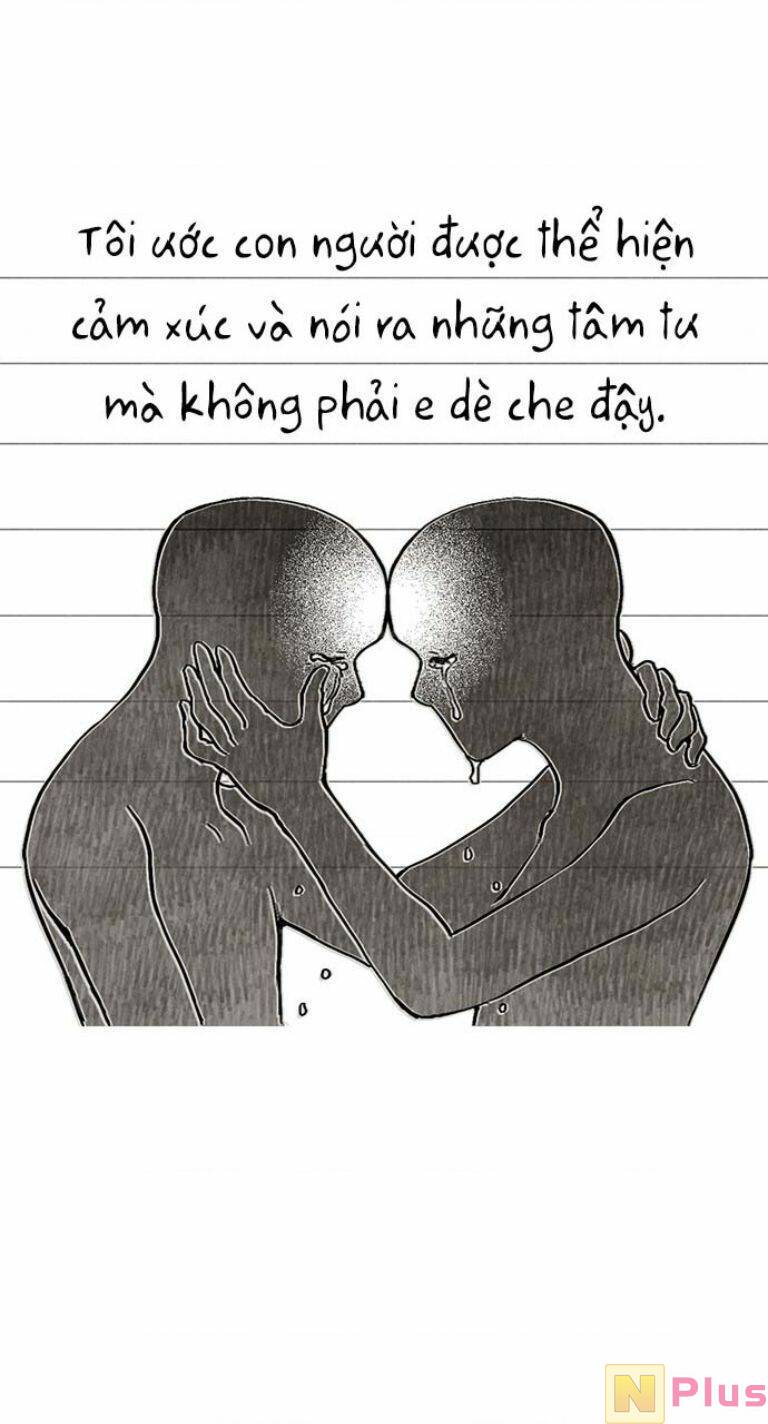 Tôi ước con người được thể hiện
cảm xúc và nói ra những tâm tư
mà không phải e dè che đậy.
N Plus